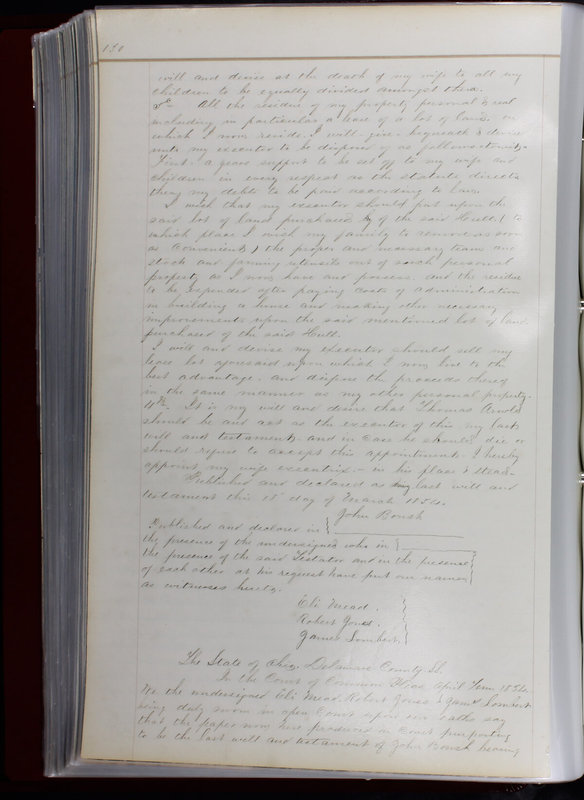 130
will and desire at the death of my wife to all my
children to be equally divided amongst them.
3rd All the residue of my property personal & real
including in particular a lease of a lot of land on
which I now reside. I will give bequeath & devise
unto my executor to be disposed of as follows to wit,
First, a years support to be set off to my wife and
children in every respect as the statute directs
then my debts to be paid according to law.
I wish that my executor should put upon the
said lot of land purchased by of the said Hutt ( to
which place I wish my family to remove as soon
as convenient ) the proper and necessary team and
stock and farming utensils out of such personal
property as I now have and possess. and the residue
to be expended after paying costs of administration
in building a house and making other necessary
improvements upon the said mentioned lot of land
purchased of the said Hutt.
I will and devise my executor should sell my
lease lot aforesaid upon which I now live to the
best advantage. and dispose the proceeds thereof
in the same manner as my other personal property.
4th. It is my will and desire that Thomas Arnold
should be and act as the executor of this my last
will and testament. and in case he should die or
should refuse to accept this appointment I hereby
appoint my wife executrix in his place & stead
Published and declared as my last will and
testament this 15 day of March 1854.
John Boush
Published and declared in
the presence of the undersigned who in
the presence of the said Testator and in the presence
of each other at his request have put our names
as witnesses hereto.
Eli Mead.
Robert Jones.
James Lombert.
The State of Ohio, Delaware County SS.
In the Court of Common Pleas April Term 1854.
We the undersigned Eli Mead Robert Jones & James Lombert
being duly sworn in open Court upon our oaths say
that the paper now here produced in Court purporting
to be the last will and testament of John Boush bearing